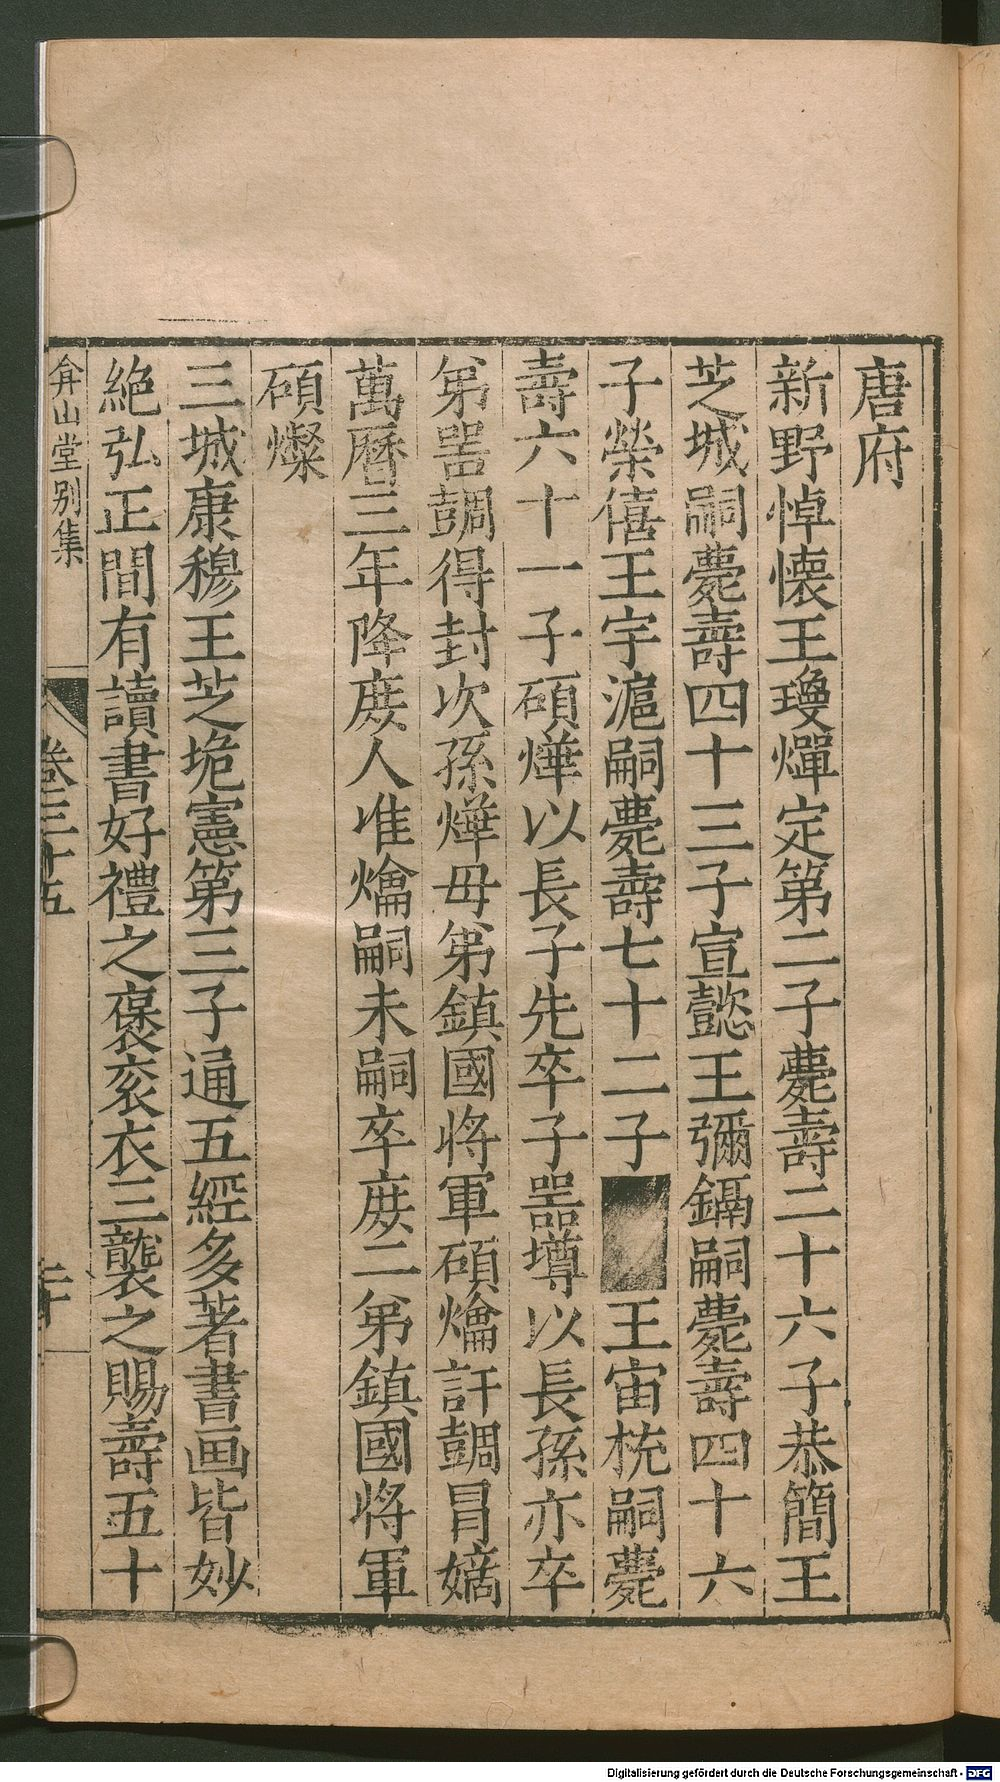 唐府
新野悼懷王瓊燀定第二子薨壽二十六子恭簡王
芝城嗣薨壽四十三子宣懿王彌鎘嗣薨壽四十六
子榮僖王宇滬嗣薨壽七十二子 王宙枕嗣薨
壽六十一子碩爗以長子先卒子噐墫以長孫亦卒
弟噐𩐶得封次孫爗毋弟鎮國將軍碩爚訐𩐶冒嫡
萬曆三年降庻人准爚嗣未嗣卒庻二弟鎮國將軍
碩燦
三城康穆王芝垝憲第三子通五經多著書画皆妙
絶弘正間有讀書好禮之褒衮衣三襲之賜壽五十
弇山堂别集 卷三十五 二十
Digitalisierung gefördert durch die Deutsche Forschungsgemeinschaft - DFG